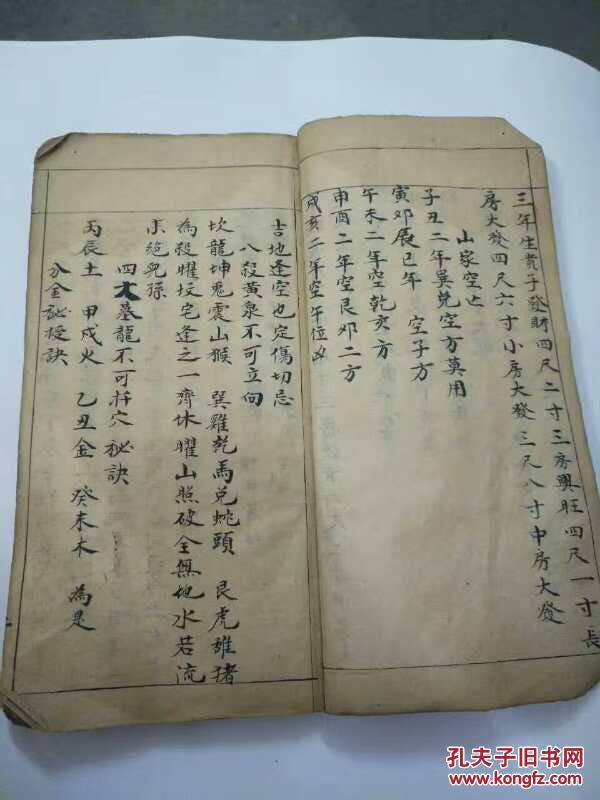 三年生貴子發財四尺二寸三房興旺四尺一寸長
房大發四尺六寸小房大發三尺八寸中房大發
山家空亡
子丑二年巽兌空方莫用
寅卯辰巳年 空子方
午未二年空乾亥方
申酉二年空艮卯二方
戌亥二年空午位凶
吉地逢空也定傷切忌
八殺黃泉不可立向
坎龍坤兎震山猴 巽雞乾馬兌蛇頭 艮虎離猪
為殺曜坟宅逢之一齊休曜山照破全無地水若流
來絕兒孫
四大墓龍不可扦穴秘訣
丙辰土 甲戌火 乙丑金 癸未木 為是
分金秘授訣
孔夫子旧书网
www.kongfz.com